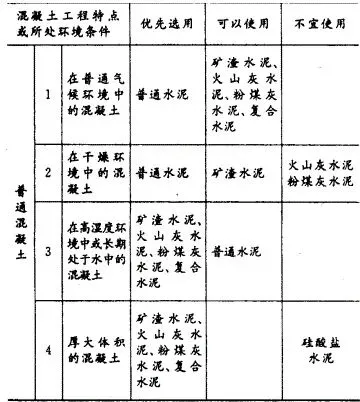 混凝土工程特点
或所处环境条件
优先选用
可以使用
不宜使用
普通混凝土
1
在普通气
候环境中
的混凝土
普通水泥
矿渣水泥、
火山灰水
泥、粉煤灰
水泥、复合
水泥
2
在干燥环
境中的混
凝土
普通水泥
矿渣水泥
火山灰水泥
粉煤灰水泥
3
在高湿度环
境中或长期
处于水中的
混凝土
矿渣水泥、
火山灰水
泥、粉煤灰
水泥、复合
水泥
普通水泥
4
厚大体积
的混凝土
矿渣水泥、
火山灰水
泥、粉煤灰
水泥、复合
水泥
硅酸盐
水泥